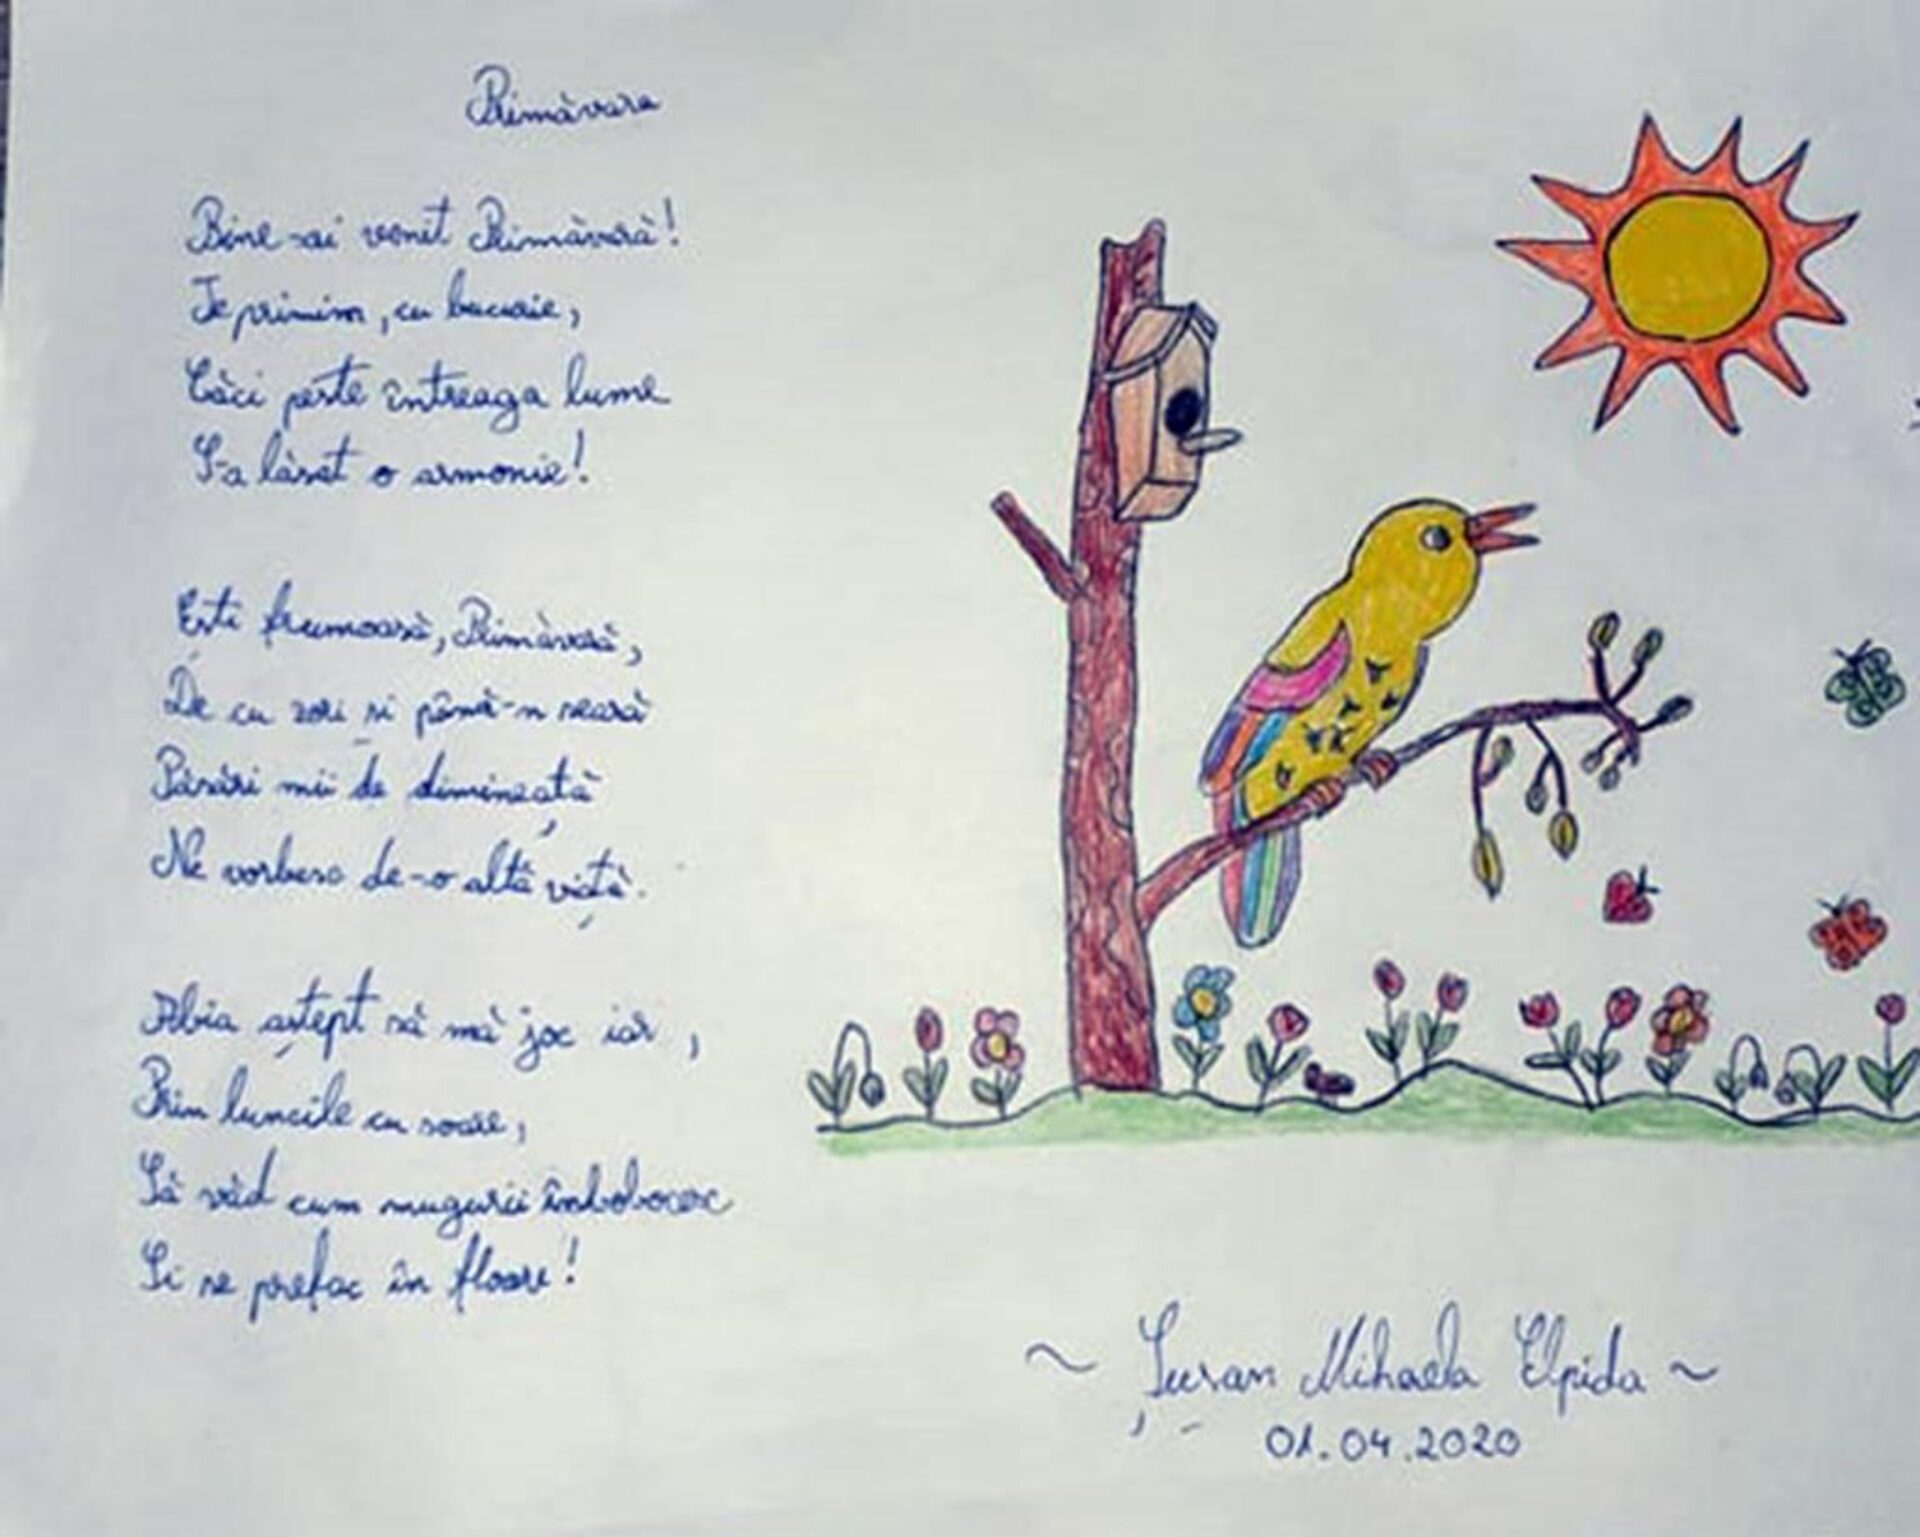 Primăvara
Bine-ai venit Primăvară!
Te primim, cu bucurie,
Căci peste întreaga lume
S-a lăsat o armonie!
Ești frumoasă, Primăvară,
De cu zori și până-n seară
Păsări mii de dimineață
Ne vorbesc de-o altă viață.
Abia aștept să mă joc iar,
Prin luncile cu soare,
Să văd cum mugurii înbobocesc
Și se prefac în floare!
~ Mihaela Elpida ~
01.04.2020